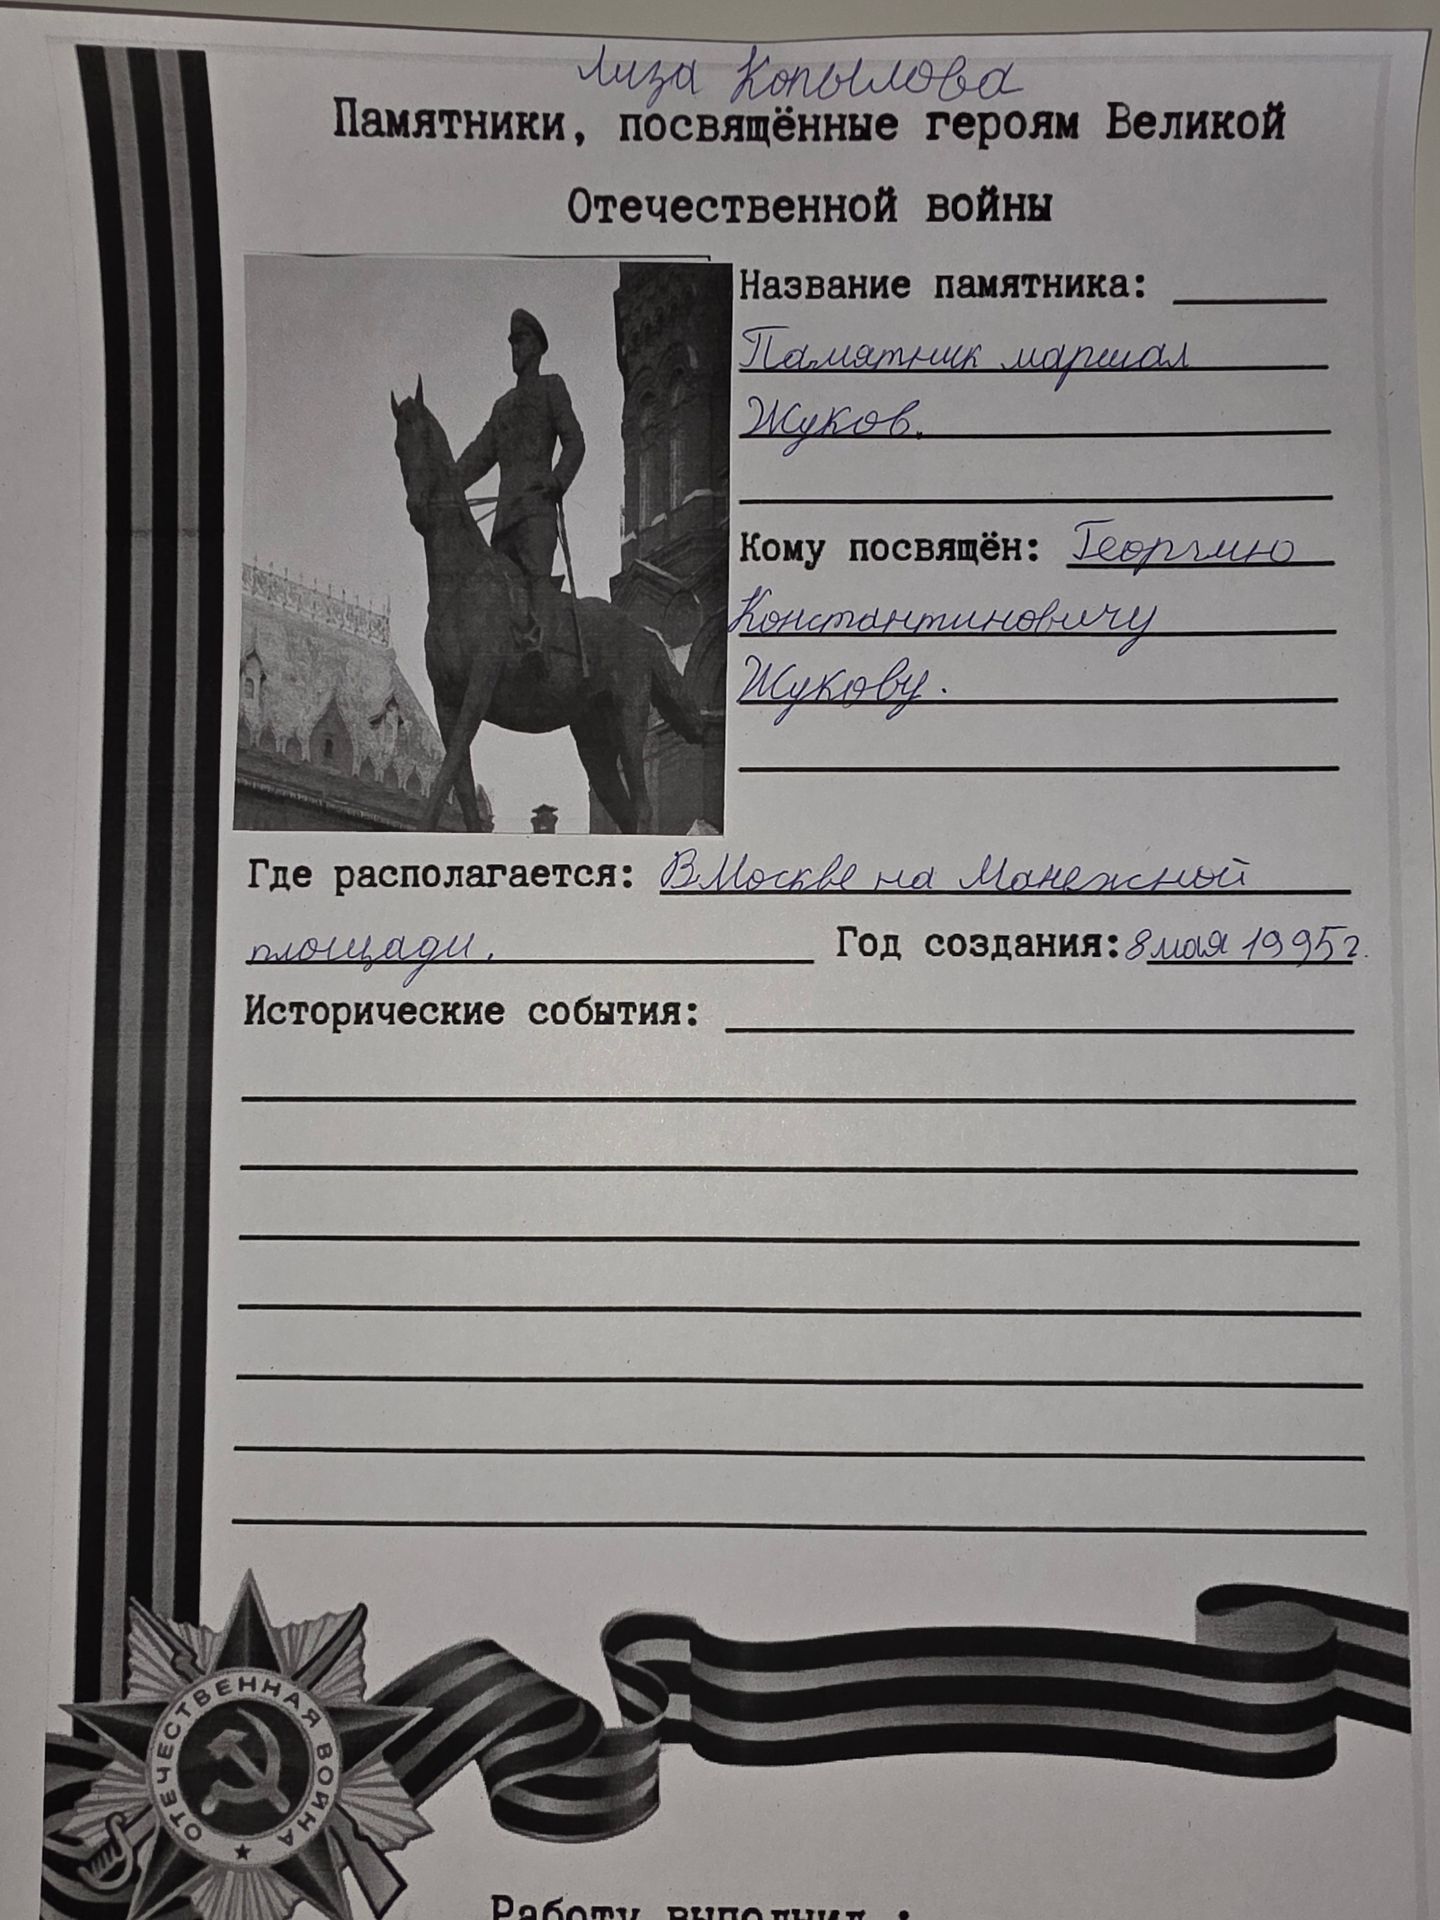 Лиза Копылова
Памятники, посвящённые героям Великой
Отечественной войны
Название памятника:
Памятник маршал
Жуков.
Кому посвящён: Георгию
Константиновичу
Жукову.
Где располагается: В Москве на Манежной
площади. Год создания: 8 мая 1995 г.
Исторические события:
ОТЕЧЕСТВЕННАЯ ВОЙНА
Работу выполнил :